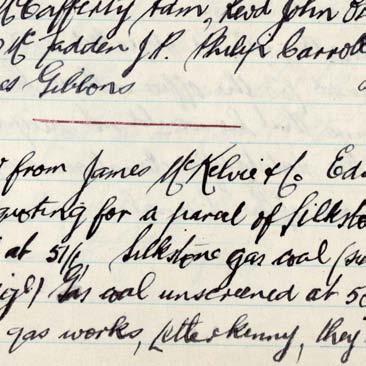 McCafferty Adm, Revd John
Mc Fadden J.P. Philip Carroll
Gibbons
from James McKelvie & Co. Ed
quoting for a parcel of Silksto
at 51/1 Silkstone gas coal (su
Gas coal unscreened at 5
gas works, Letterkenny, they